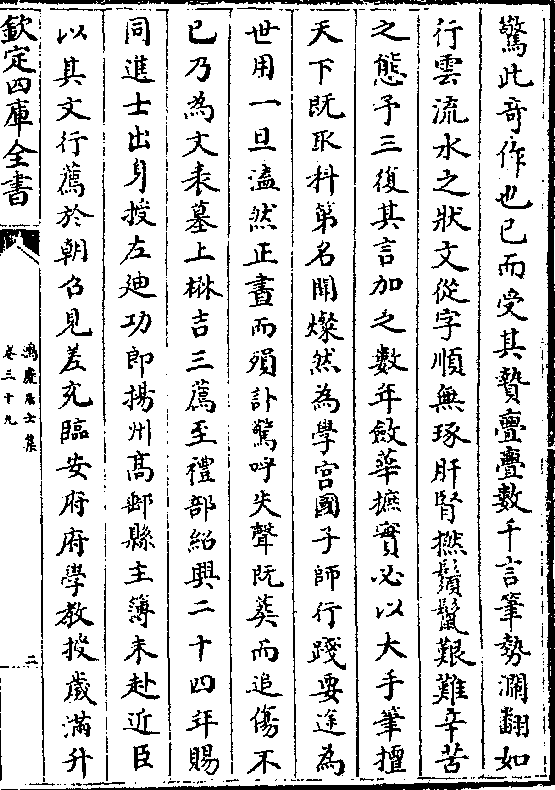 驚此奇作也已而受其贄亹亹數千言筆勢瀾翻如
行雲流水之狀文從字順無琢肝腎撚鬚鬢艱難辛苦
之態予三復其言加之數年斂華摭實必以大手筆擅
天下既取科第名聞燦然為學宫國子師行踐要途為
世用一旦溘然正晝而殞訃驚呼失聲既葬而追傷不
已乃為文表墓上楙吉三薦至禮部紹興二十四年賜
同進士出身授左迪功郎揚州髙郵縣主簿未赴近臣
以其文行薦於朝召見差充臨安府府學教授嵗滿升
欽定四庫全書
鴻慶居士集
卷三十九
二